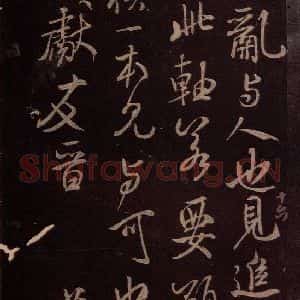 亂与人也見進
此軸若要
一本見与可也
獻友晉
Shufawang.CN